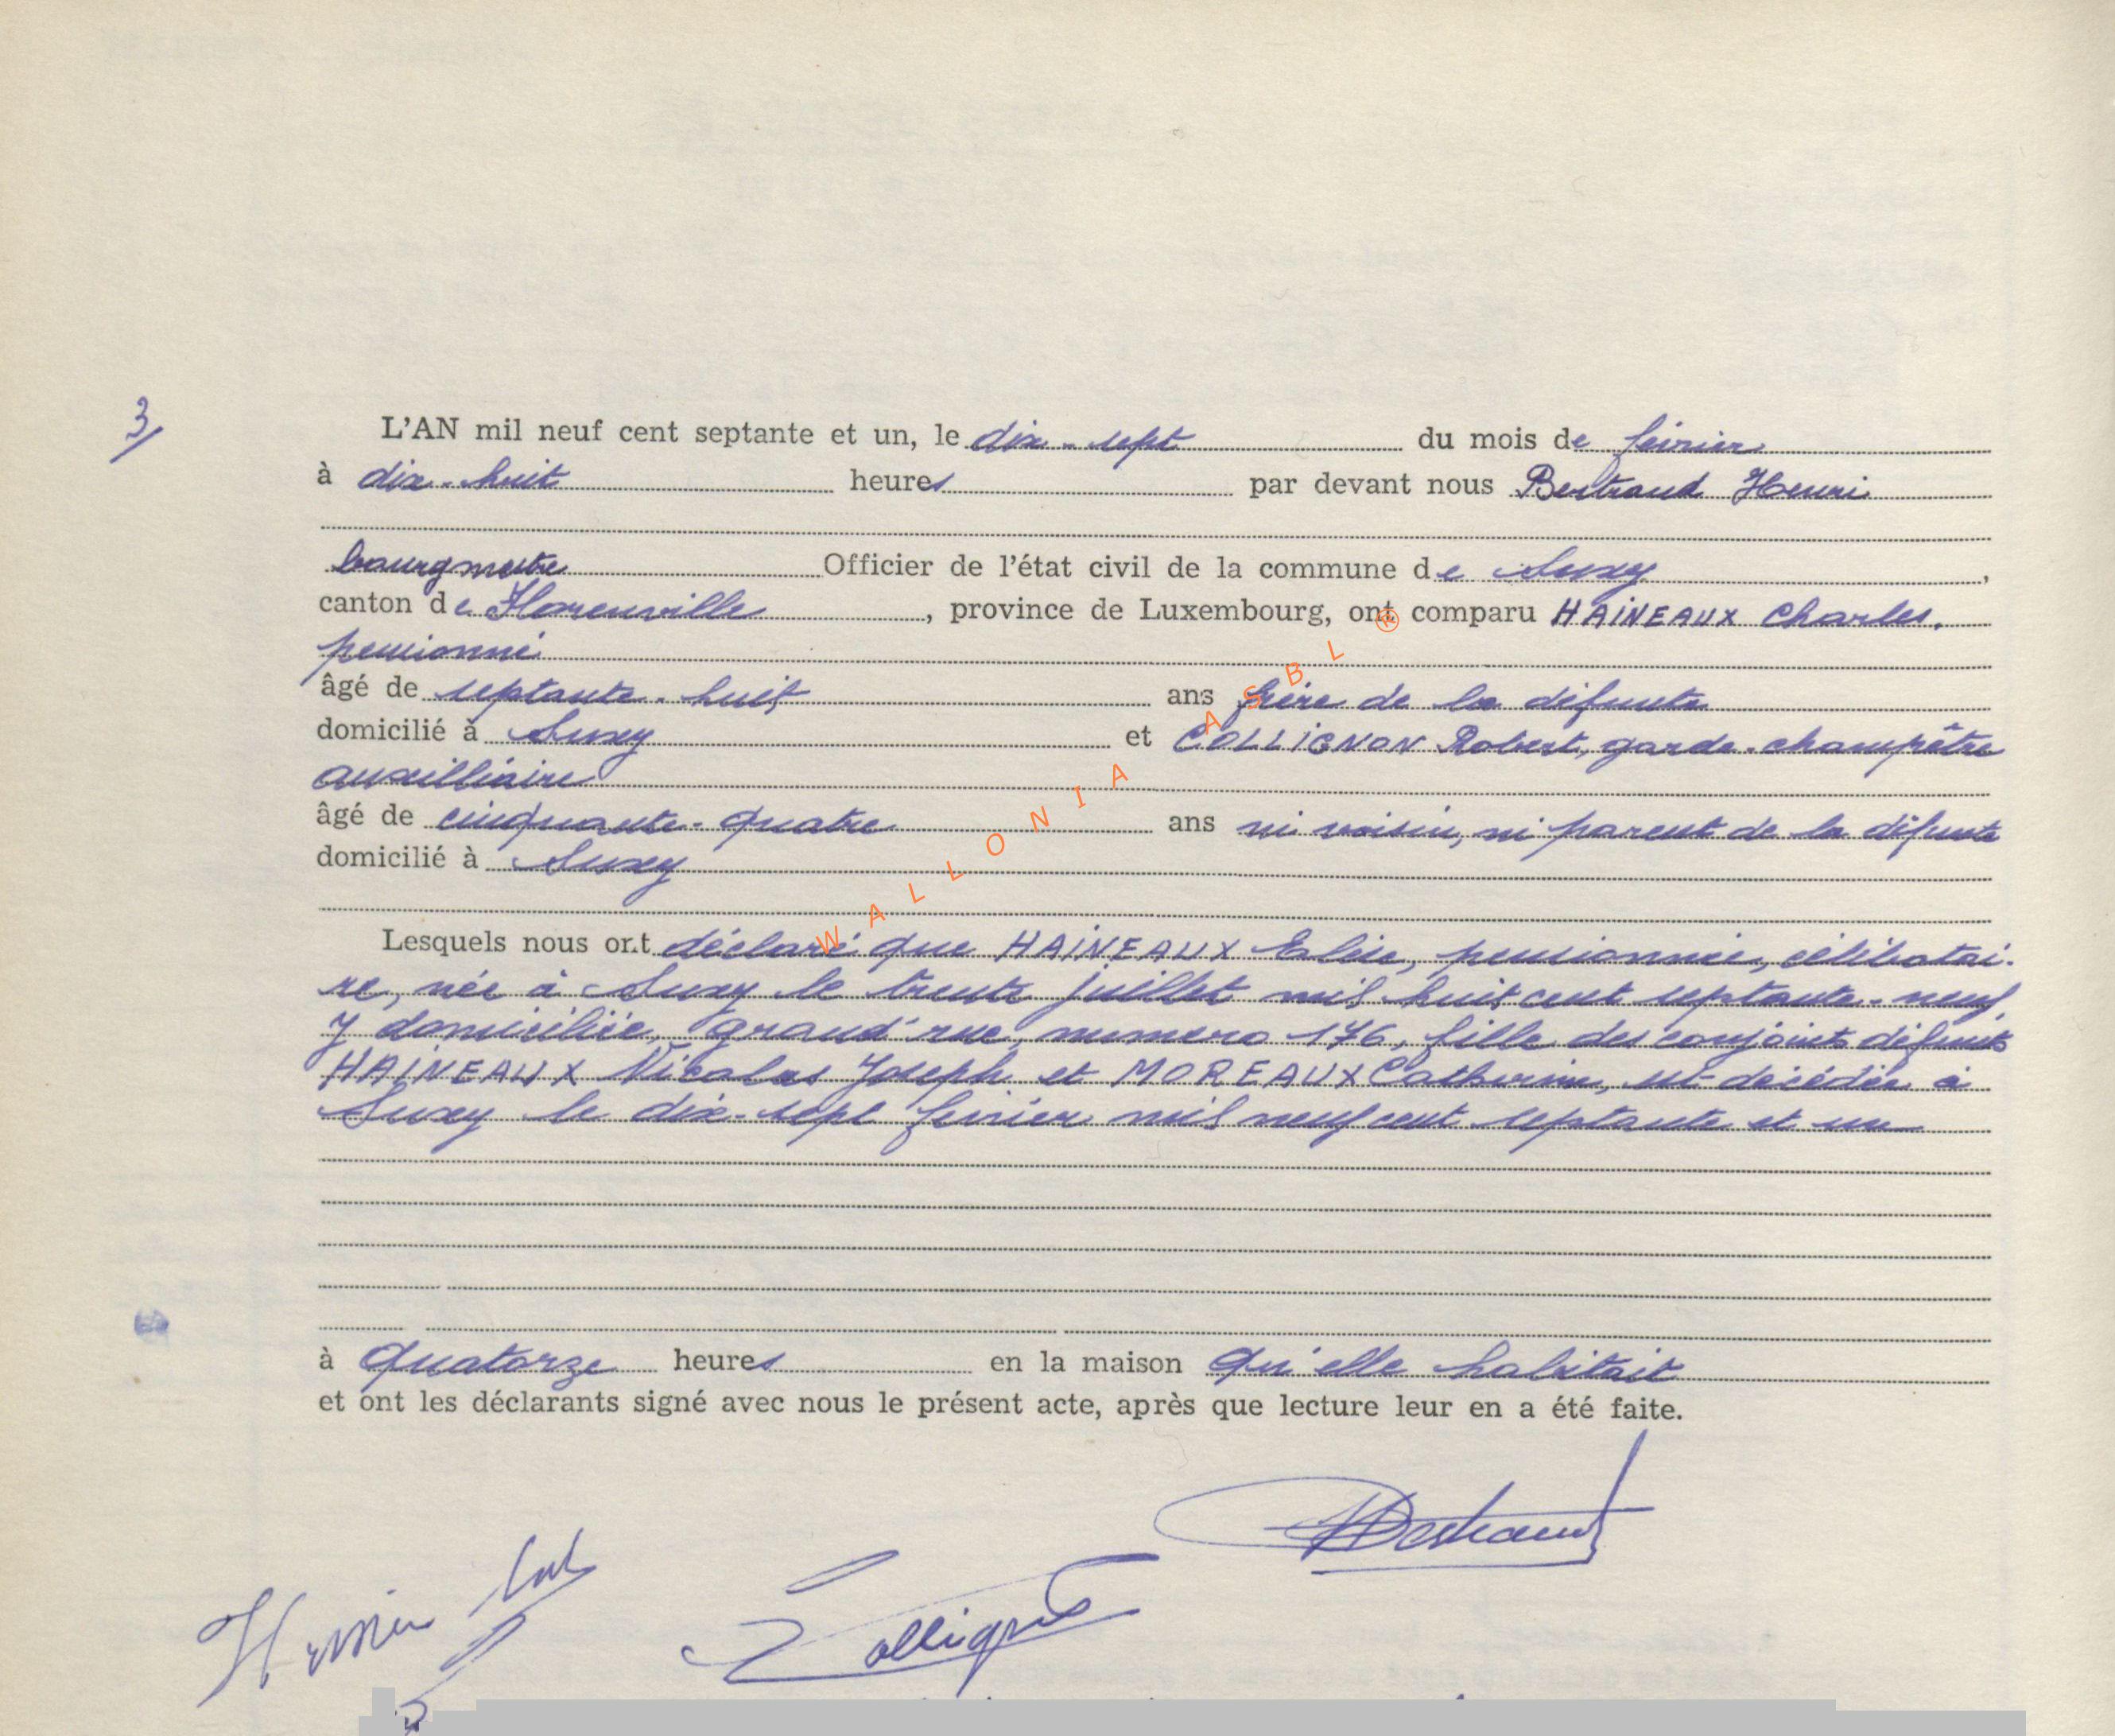 3/
L'AN mil neuf cent septante et un, le dix-sept du mois de février
à dix-huit heures par devant nous Bertrand Henri
bourgmestre Officier de l'état civil de la commune de Suxy,
canton de Florenville, province de Luxembourg, ont comparu HAINEAUX Charles,
pensionné
âgé de septante-huit ans frère de la défunte
domicilié à Suxy et COLLIGNON Robert, garde-champêtre
auxilliaire
âgé de cinquante-quatre ans ni voisin, ni parent de la défunte
domicilié à Suxy
Lesquels nous ont déclaré que HAINEAUX Eulalie, pensionnée, célibatai-
re, née à Suxy le trente juillet mil huit cent septante-neuf
y domiciliée, grand'rue, numero 176, fille des conjoints défunts
HAINEAUX Nicolas Joseph et MOREAUX Catherine, est décédée à
Suxy le dix-sept février mil neuf cent septante et un
à quatorze heures en la maison qu'elle habitait
et ont les déclarants signé avec nous le présent acte, après que lecture leur en a été faite.
HBertrand
Collignon
WALLONIA ASBL ®